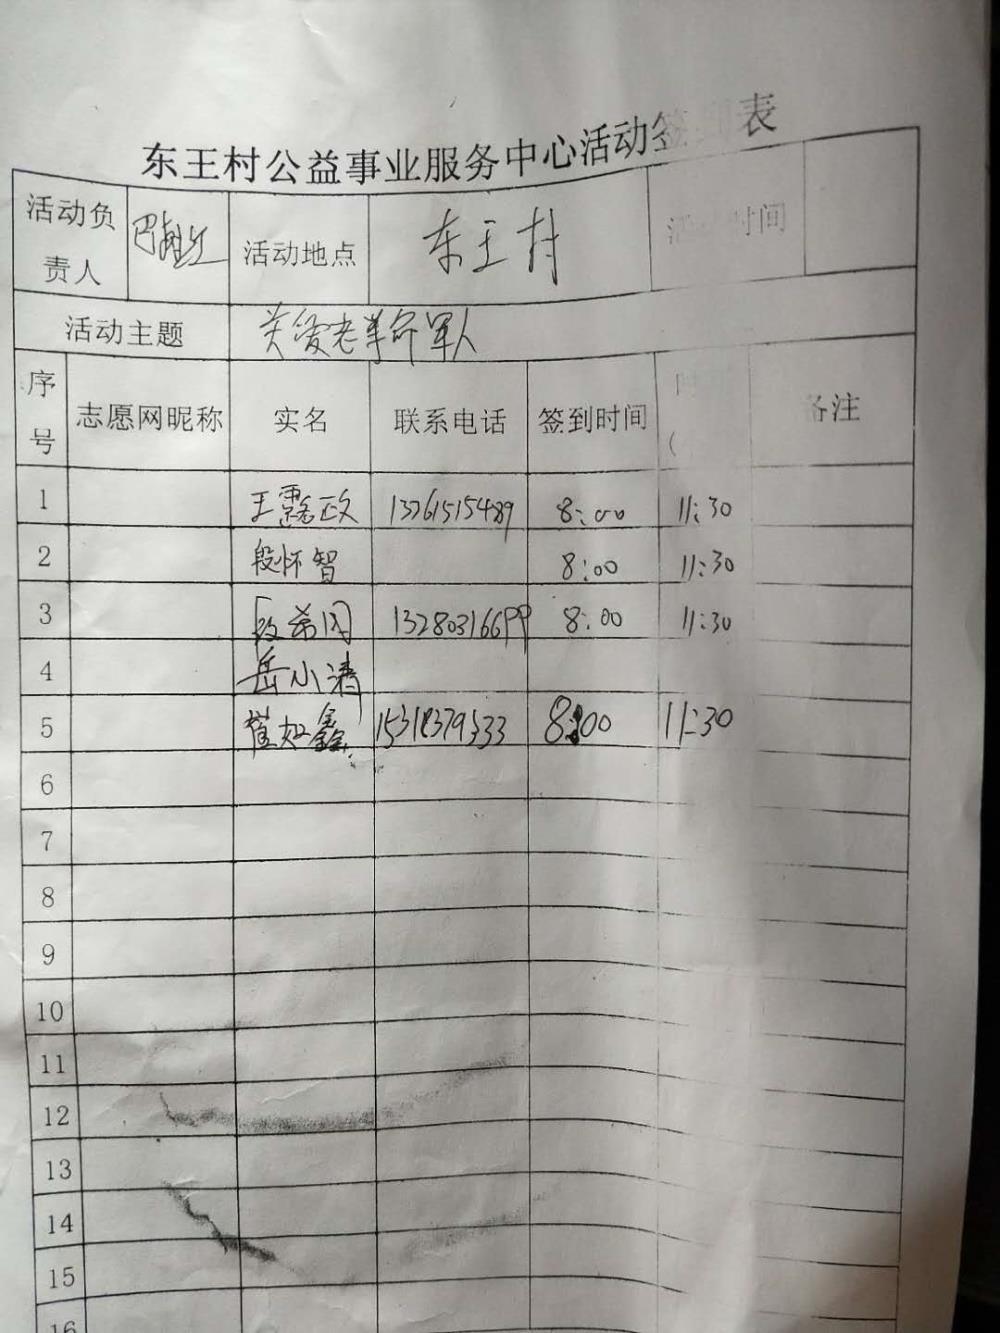 东王村公益事业服务中心活动签到表
活动负责人 活动地点 东王村 活动时间
活动主题 关爱老革命军人
序号 志愿网昵称 实名 联系电话 签到时间 备注
1 王 政 13761515489 8:00 11:30
2 段怀智 8:00 11:30
3 13280316699 8:00 11:30
4 岳小清
5 崔如鑫 8:00 11:30
6
7
8
9
10
11
12
13
14
15
16